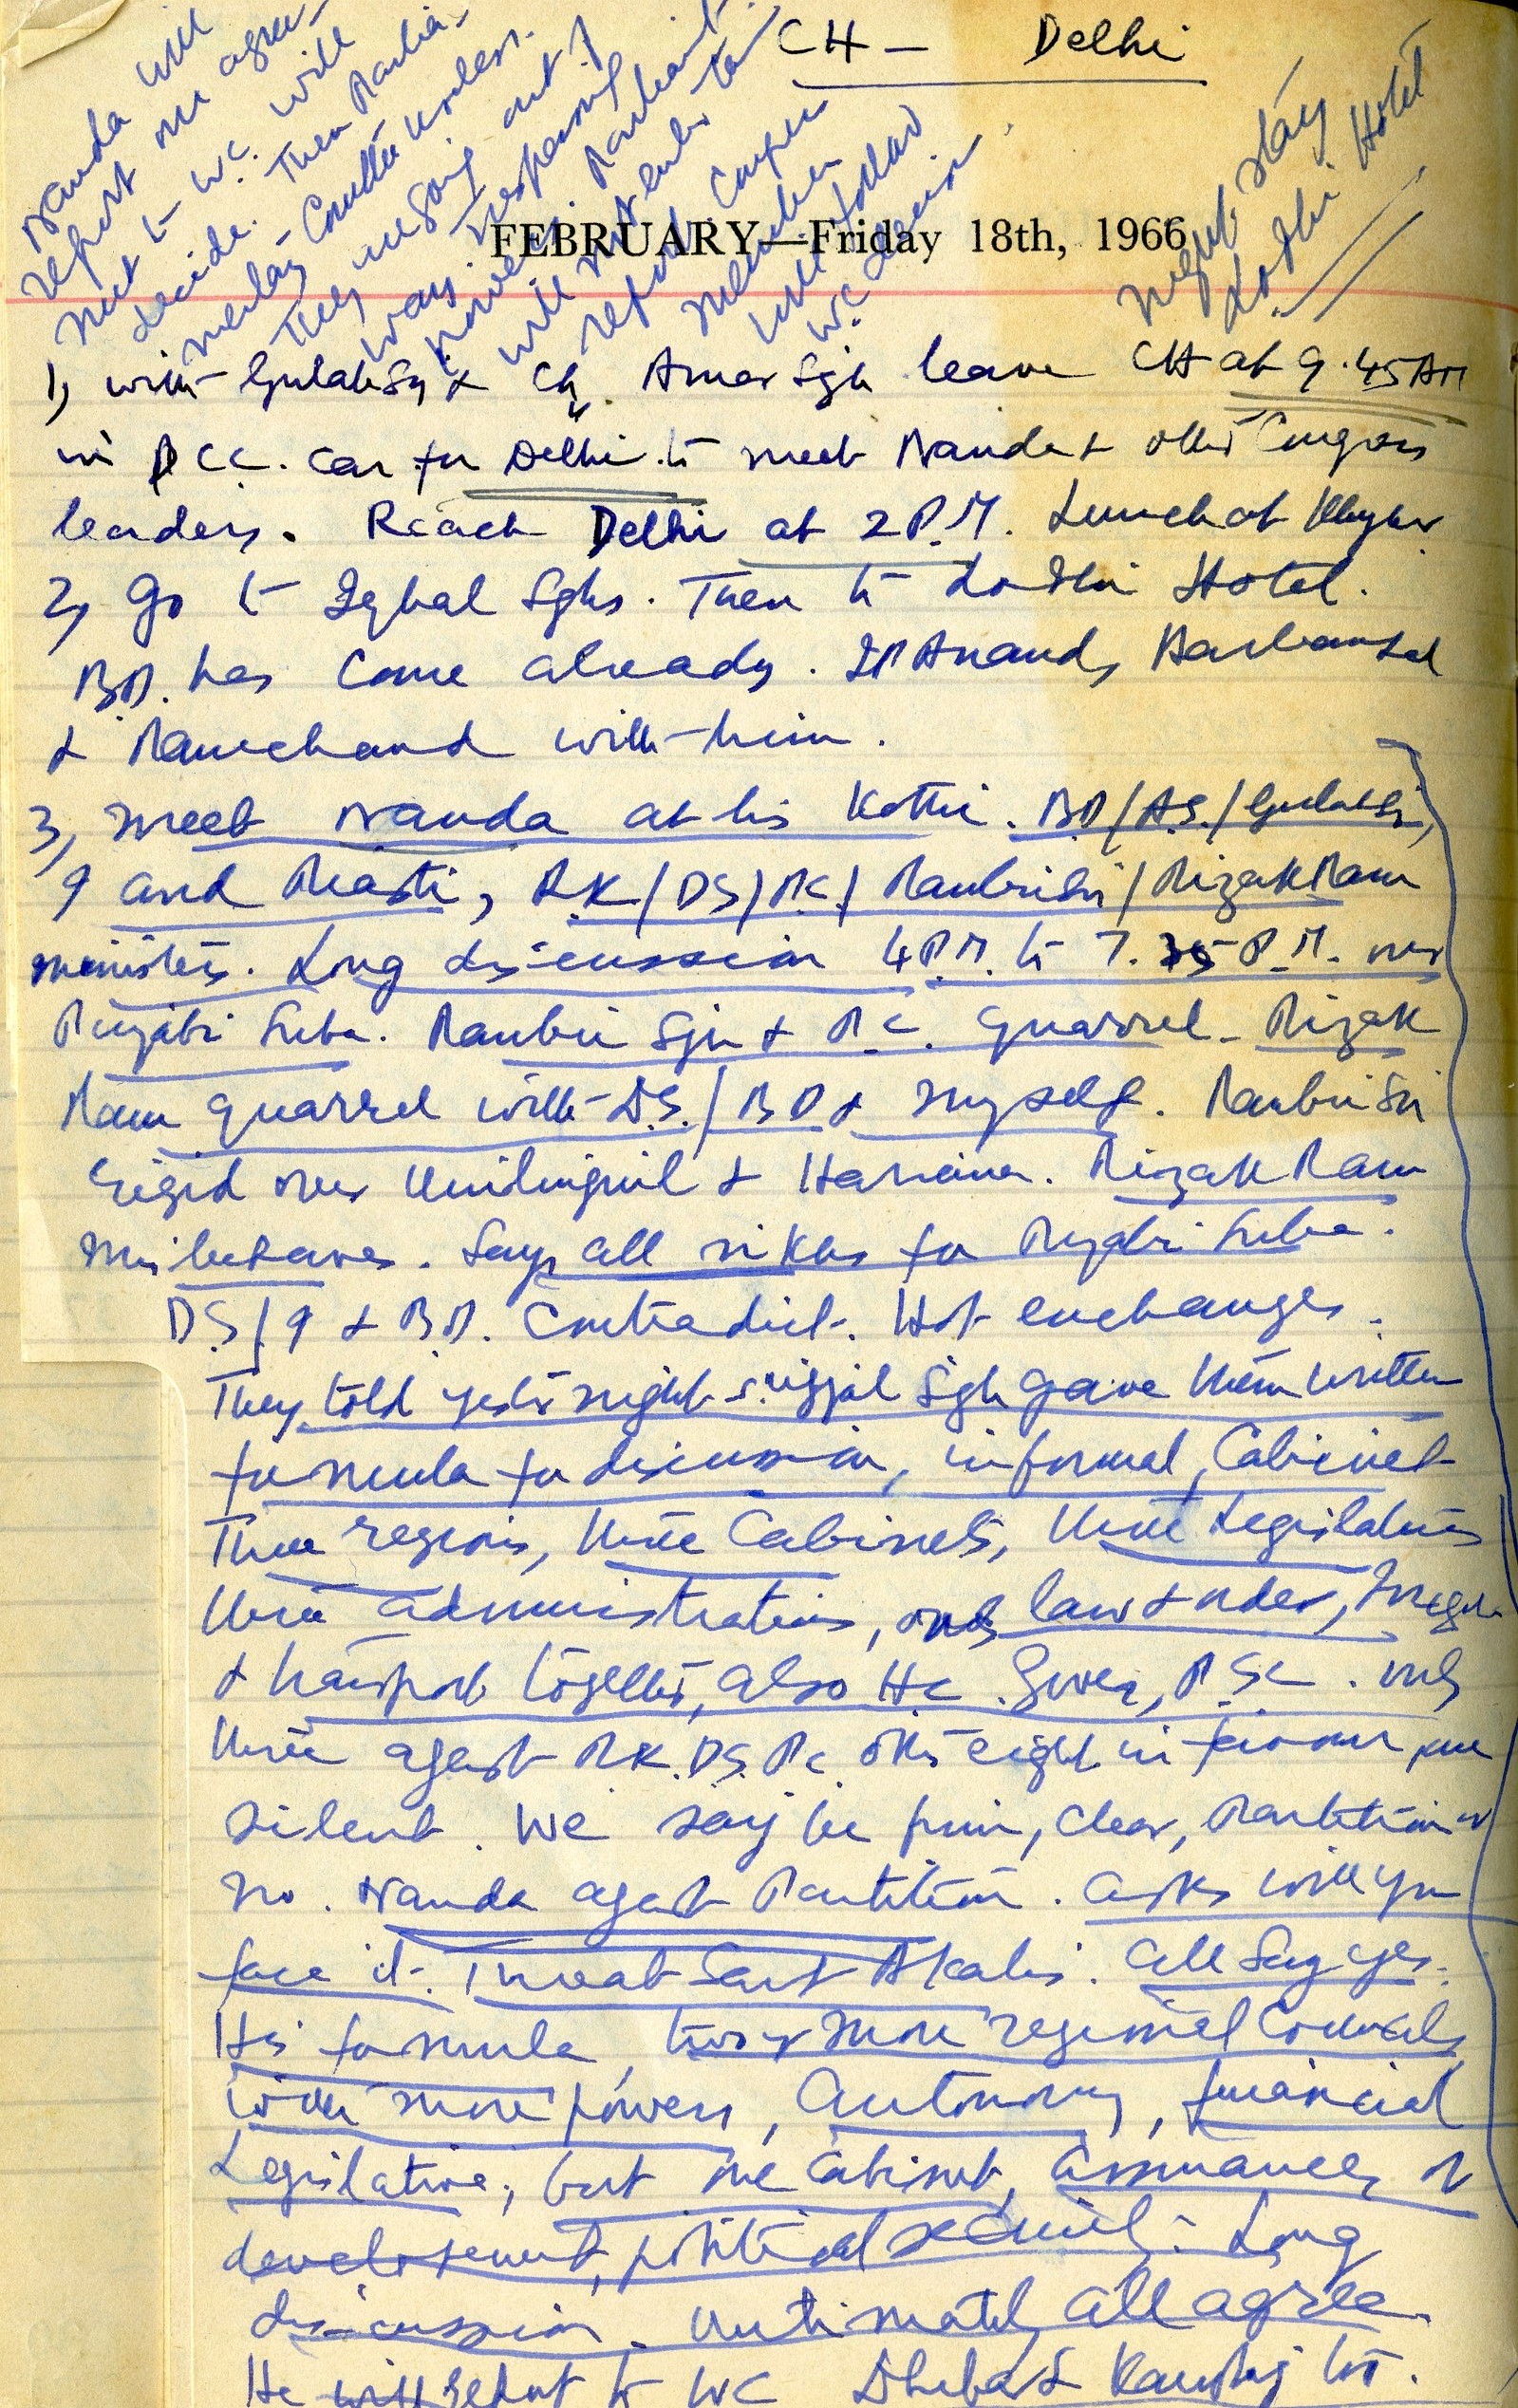 CH — Delhi
Nanda will
report on agree-
ment to W.C. will
decide. Then Parlia-
mentary Comttee useless.
They are going out of
way.
powers. Parliament
will not enter
report. Congress
members
will follow
W.C. decision
Night stay
Lodhi Hotel
FEBRUARY—Friday 18th, 1966
1, with Gulab Sgh & Ch. Amar Sgh leave CH at 9.45 AM
in PCC. Car for Delhi to meet Nanda & other Congress
leaders. Reach Delhi at 2 P.M. Lunch at Khyber.
2, Go to Iqbal Sghs. Then to Lodhi Hotel.
B.D. has come already. IP Anand, Harbans Lal
& Ramchand with him.
3, meet Nanda at his Kothi. BD/A.S./Gulab Si,
I and Masti, R.K/DS/P.C/Ranbir Si/Rizak Ram
ministers. Long discussion 4 P.M. to 7.35 P.M. over
Punjabi Suba. Ranbir Sgh & P.C. quarrel. Rizak
Ram quarrel with D.S./B D & myself. Ranbir Si
rigid over Unilingual & Hariana. Rizak Ram
misbehaves. Says all sikhs for Punjabi Suba.
D.S/I & B.D. Contradict. Hot exchanges.
They told yester night Sgh gave them written
formula for discussion, informal, Cabinet
Three regions, three Cabinets, three Legislatures
three administrations, only law & order,
& transport together, also H C. Gover, P.S.C. only
three agest R.K. D.S. P.C. others eight in favour one
silent. We say be firm, clear, Partition or
no. Nanda agest Partition. asks will you
face it. Threat Sant Akalis. All say yes.
His formula, two or more regional Councils
with more powers, Autonomy, financial
Legislative, but one Cabinet, assurances of
development, political security. Long
discussion. Ultimately all agree.
He will report to WC Dhebar & Kamraj too.